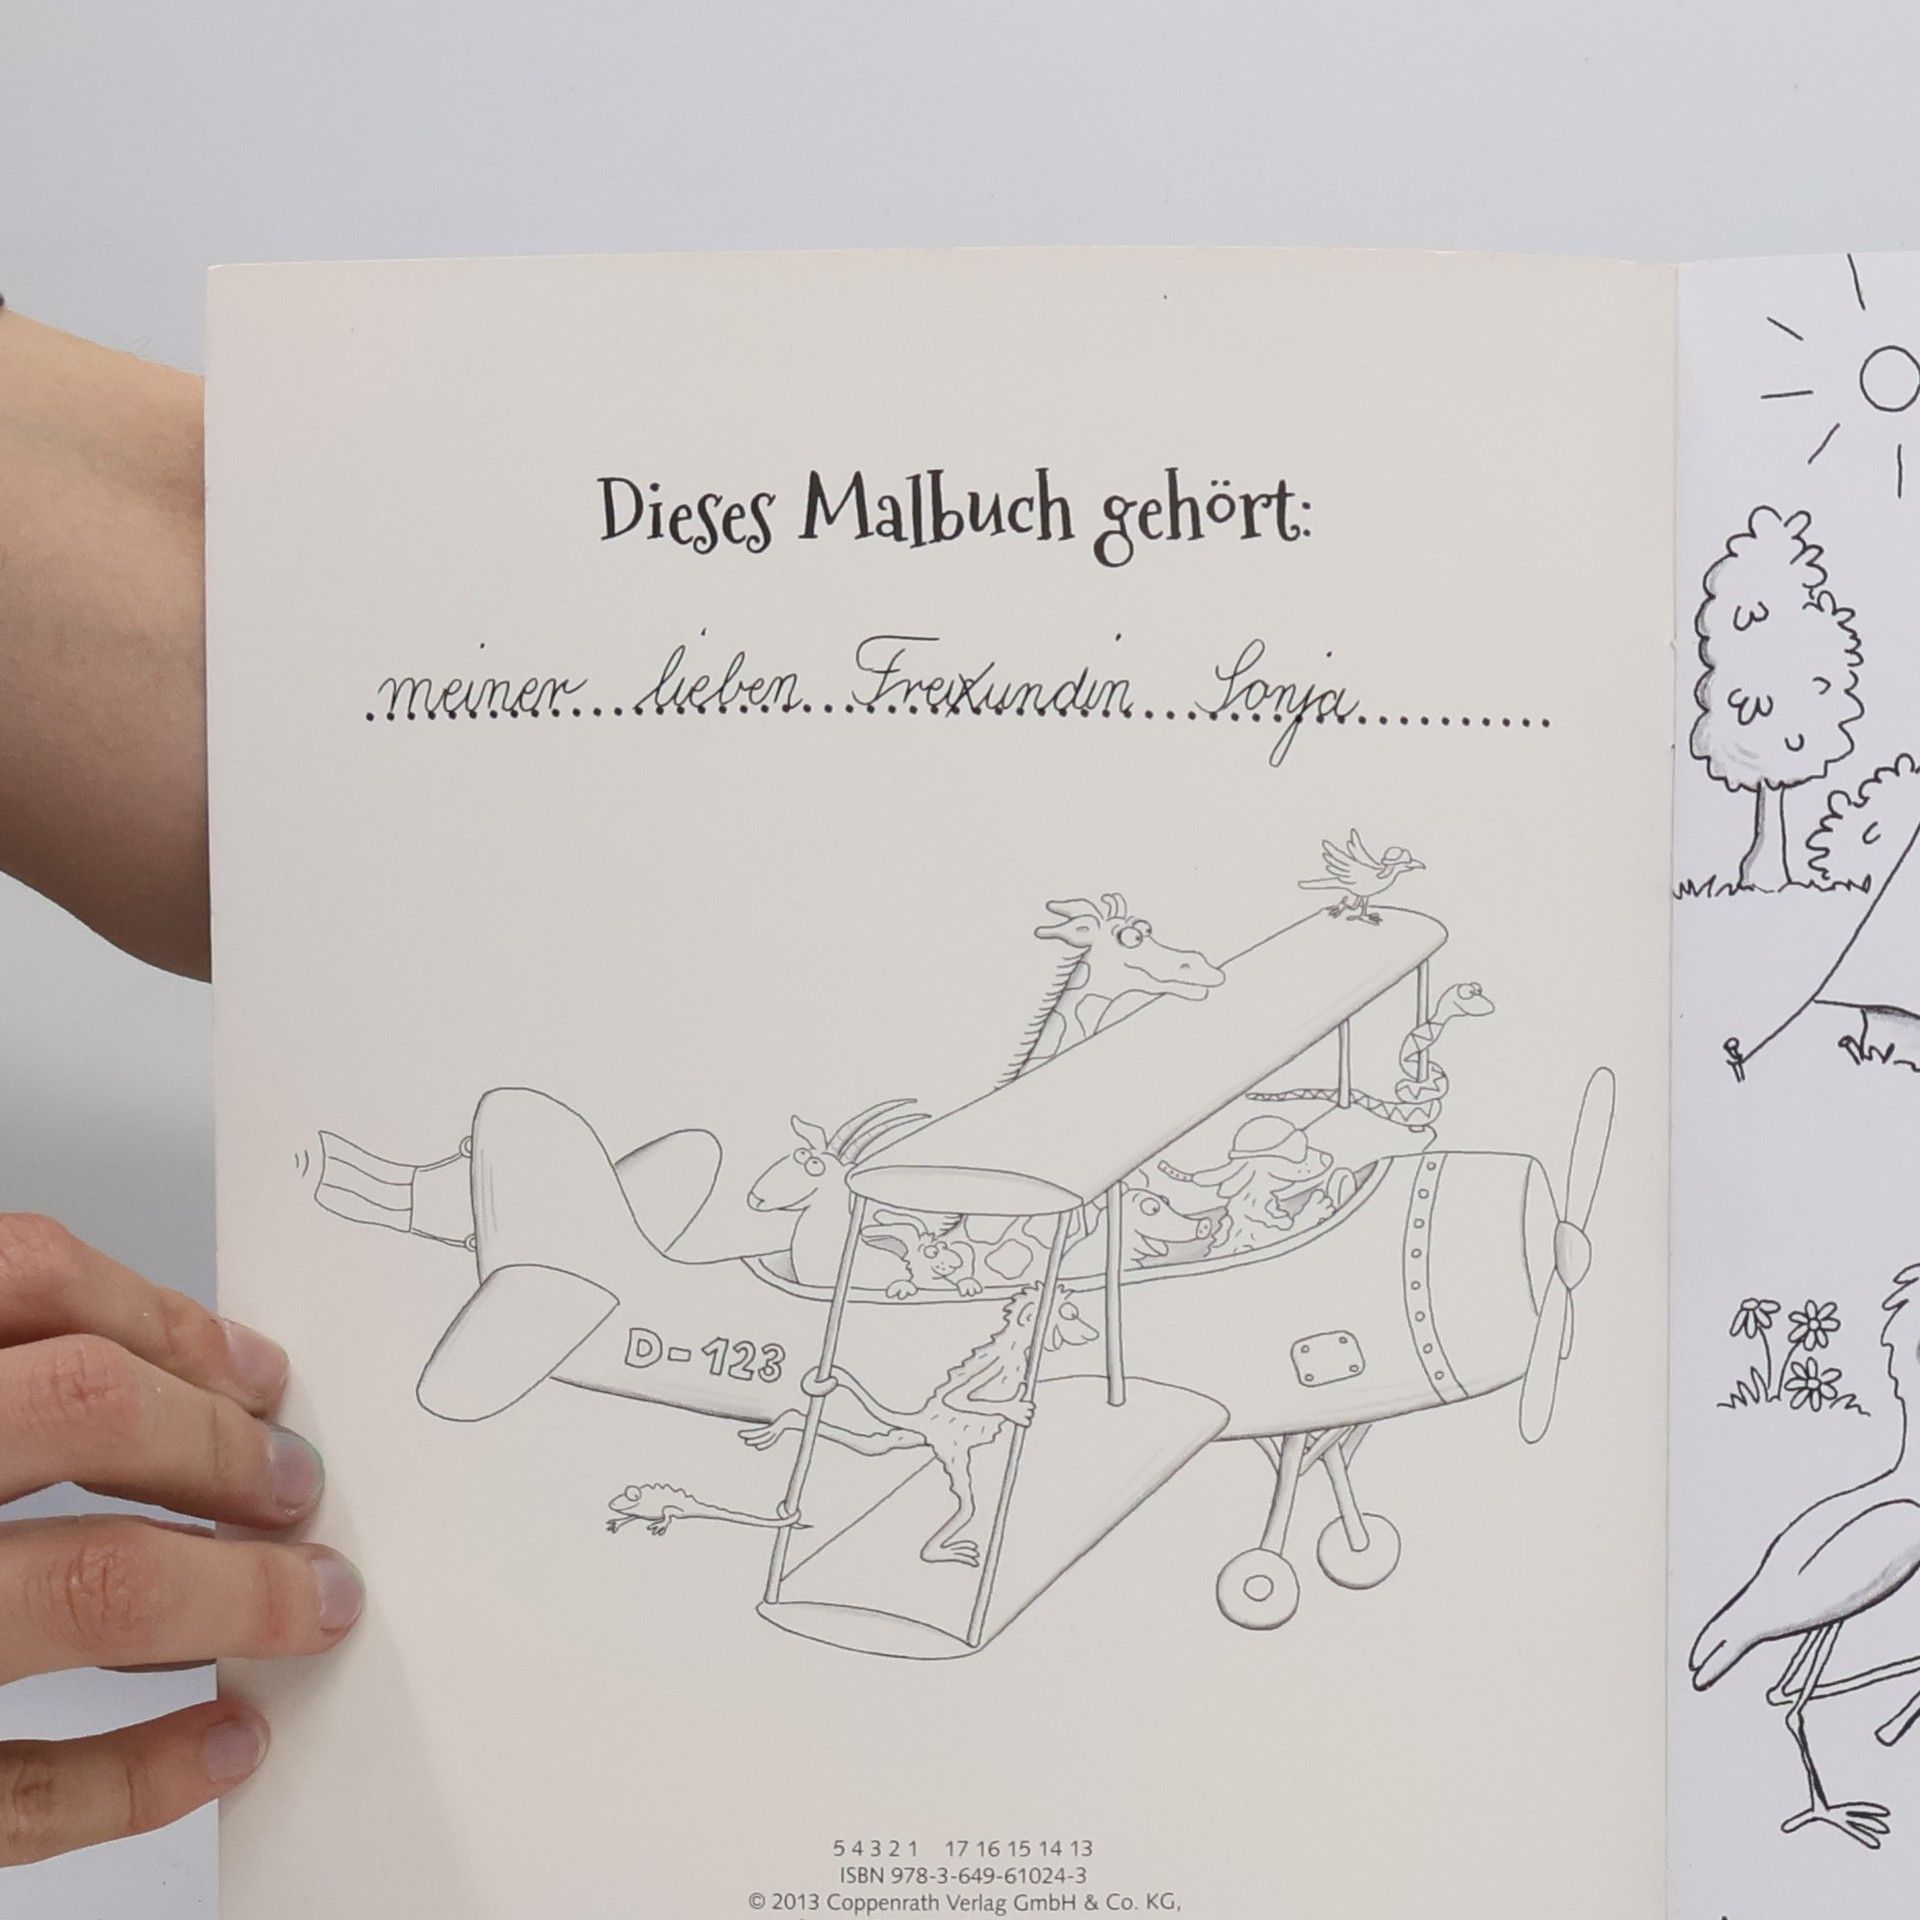 Dieses Malbuch gehört:
meiner lieben Freundin Sonja
D-123
5 4 3 2 1 17 16 15 14 13
ISBN 978-3-649-61024-3
© 2013 Coppenrath Verlag GmbH & Co. KG,